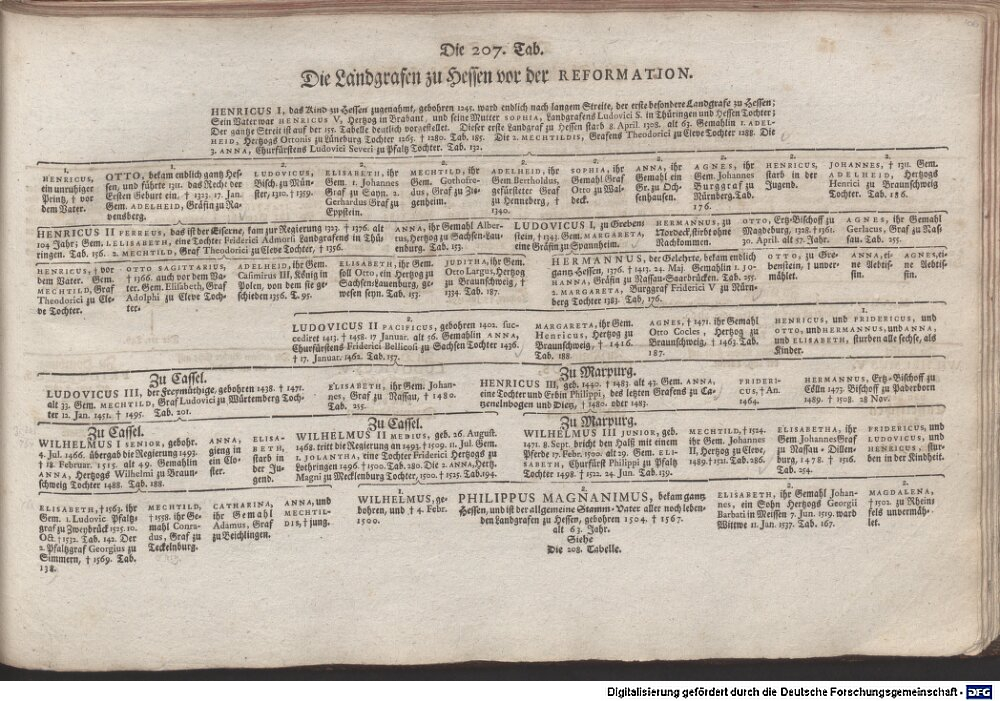 Die 207. Tab.
Die Landgrafen zu Hessen vor der REFORMATION.
HENRICUS I, das Kind zu Hessen zugenahmt, gebohren 1245. ward endlich nach langem Streite, der erste besondere Landgrafe zu Hessen;
Sein Vater war HENRICUS V, Hertzog in Brabant, und seine Mutter SOPHIA, Landgrafens Ludovici S. in Thüringen und Hessen Tochter;
Der gantze Streit ist auf der 155. Tabelle deutlich vorgestellet. Dieser erste Landgraf zu Hessen starb 8. April. 1308. alt 63. Gemahlin 1. ADEL-
HEID, Hertzogs Ottonis zu Lüneburg Tochter 1265. † 1280. Tab. 185. Die 2. MECHTILDIS, Grafens Theodorici zu Cleve Tochter 1288. Die
3. ANNA, Churfürstens Ludovici Severi zu Pfaltz Tochter. Tab. 132.
1.
HENRICUS,
ein unruhiger
Printz, † vor
dem Vater.
1.
OTTO, bekam endlich gantz Hes-
sen, und führte 1311. das Recht der
Ersten Geburt ein. † 1323. 17. Jan.
Gem. ADELHEID, Gräfin zu Ra-
vensberg.
2.
LUDOVICUS,
Bisch. zu Mün-
ster, 1310. † 1359.
2.
ELISABETH, ihr
Gem. 1. Johannes
Gr. zu Sayn. 2.
Gerhardus Graf zu
Eppstein.
2.
MECHTILD, ihr
Gem. Gothofre-
dus, Graf zu Zie-
genheim.
2.
ADELHEID, ihr
Gem Bertholdus,
gefürsteter Graf
zu Henneberg, †
1340.
2.
SOPHIA, ihr
Gemahl Graf
Otto zu Wal-
deck.
2.
ANNA, ihr
Gemahl ein
Gr. zu Och-
senhausen.
2.
AGNES, ihr
Gem. Johannes
Burggraf zu
Nürnberg. Tab.
176.
2.
HENRICUS,
starb in der
Jugend.
2.
JOHANNES, † 1311. Gem.
ADELHEID, Hertzogs
Henrici zu Braunschweig
Tochter. Tab. 186.
HENRICUS II FERREUS, das ist der Eiserne, kam zur Regierung 1323. † 1376. alt
104 Jahr; Gem. 1. ELISABETH, eine Tochter Friderici Admorsi Landgrafens in Thü-
ringen. Tab. 156. 2. MECHTILD, Graf Theodorici zu Cleve Tochter, † 1356.
ANNA, ihr Gemahl Alber-
tus, Hertzog zu Sachsen-Lau-
enburg. Tab. 153.
LUDOVICUS I, zu Grebens
stein, † 1343. Gem. MARGARETA,
eine Gräfin zu Spanheim.
HERMANNUS, zu
Nordeck, stirbt ohne
Nachkommen.
OTTO, Ertz-Bischoff zu
Magdeburg, 1328. † 1361.
30. April. alt 57. Jahr.
AGNES, ihr Gemahl
Gerlacus, Graf zu Nas-
sau. Tab. 255.
HENRICUS, † vor
dem Vater. Gem.
MECHTILD, Graf
Theodorici zu Cle-
ve Tochter.
OTTO SAGITTARIUS,
† 1366. auch vor dem Va-
ter. Gem. Elisabeth, Graf
Adolphi zu Cleve Toch-
ter.
ADELHEID, ihr Gem.
Casimirus III, König in
Polen, von dem sie ge-
schieden 1356. T. 95.
ELISABETH, ihr Gem.
soll Otto, ein Hertzog zu
Sachsen-Lauenburg, ge-
wesen seyn. Tab. 153.
JUDITHA, ihr Gem.
Otto Largus, Hertzog
zu Braunschweig, †
1334. Tab. 187.
HERMANNUS, der Gelehrte, bekam endlich
gantz Hessen, 1376. † 1413. 24. Maj. Gemahlin 1. JO-
HANNA, Gräfin zu Nassau-Saarbrücken. Tab. 255.
2. MARGARETA, Burggraf Friderici V zu Nürn-
berg Tochter 1383. Tab. 176.
OTTO, zu Gre-
benstein, † unver-
mählet.
ANNA, eine
Aebtis-
sin.
AGNES, eine
Aebtis-
sin.
2.
LUDOVICUS II PACIFICUS, gebohren 1402. suc-
cediret 1413. † 1458. 17 Januar. alt 56. Gemahlin ANNA,
Churfürstens Friderici Bellicosi zu Sachsen Tochter 1436.
† 17. Januar. 1462. Tab. 157.
MARGARETA, ihr Gem.
Henricus, Hertzog zu
Braunschweig, † 1416.
Tab. 188.
AGNES, † 1471. ihr Gemahl
Otto Cocles, Hertzog zu
Braunschweig, † 1463. Tab.
187.
1.
HENRICUS, und FRIDERICUS, und
OTTO, und HERMANNUS, und ANNA,
und ELISABETH, sturben alle sechse, als
Kinder.
Zu Cassel.
LUDOVICUS III, der Freymüthige, gebohren 1438. † 1471.
alt 33. Gem. MECHTILD, Graf Ludovici zu Würtemberg Toch-
ter 12. Jan. 1451. † 1495. Tab. 201.
ELISABETH, ihr Gem. Johan-
nes, Graf zu Nassau, † 1480.
Tab. 255.
Zu Marpurg.
HENRICUS III, geb. 1440. † 1483. alt 43. Gem. ANNA,
eine Tochter und Erbin Philippi, des letzten Grafens zu Ca-
tzenelnbogen und Dietz, † 1480. oder 1483.
FRIDERI-
CUS, † An.
1464.
HERMANNUS, Ertz-Bischoff zu
Cölln 1473. Bischoff zu Paderborn
1489. † 1508. 28 Nov.
Zu Cassel.
WILHELMUS I SENIOR, gebohr.
4. Jul. 1466. übergab die Regierung 1493.
† 18 Februar. 1515. alt 49. Gemahlin
ANNA, Hertzogs Wilhelmi zu Braun-
schweig Tochter 1488. Tab. 188.
ANNA,
gieng in
ein Clo-
ster.
ELISA-
BETH,
starb in
der Ju-
gend.
Zu Cassel.
WILHELMUS II MEDIUS, geb. 26. August.
1468. tritt die Regierung an 1493. † 1509. 11. Jul. Gem.
1. JOLANTHA, eine Tochter Friderici Hertzogs zu
Lothringen 1496. † 1500. Tab. 280. Die 2. ANNA, Hertz.
Magni zu Mecklenburg Tochter, 1500. † 1525. Tab. 194.
Zu Marpurg.
WILHELMUS III JUNIOR, geb.
1471. 8. Sept. bricht den Halß mit einem
Pferde 17. Febr. 1500. alt 29. Gem. ELI-
SABETH, Churfürst Philippi zu Pfaltz
Tochter 1498. † 1522. 24 Jun. Tab. 139.
MECHTILD, † 1524.
ihr Gem. Johannes
II, Hertzog zu Cleve,
1489. † 1521. Tab. 286.
ELISABETHA, ihr
Gem. Johannes Graf
zu Nassau-Dillen-
burg, 1478. † 1516.
Tab. 254.
FRIDERICUS, und
LUDOVICUS, und
HENRICUS, stur-
ben in der Kindheit.
ELISABETH, † 1563. ihr
Gem. 1. Ludovic Pfaltz-
graf zu Zweybrück 1525. 10.
Oct. † 1532. Tab. 142. Der
2. Pfaltzgraf Georgius zu
Simmern, † 1569. Tab.
138.
MECHTILD,
† 1558. ihr Ge-
mahl Conra-
dus, Graf zu
Teckelnburg.
CATHARINA,
ihr Gemahl
Adamus, Graf
zu Beichlingen.
ANNA, und
MECHTIL-
DIS, † jung.
1.
WILHELMUS, ge-
bohren, und † 4. Febr.
1500.
2.
PHILIPPUS MAGNANIMUS, bekam gantz
Hessen, und ist der allgemeine Stamm-Vater aller noch leben-
den Landgrafen zu Hessen, gebohren 1504. † 1567.
alt 63. Jahr.
Siehe
Die 208. Tabelle.
2.
ELISABETH, ihr Gemahl Johan-
nes, ein Sohn Hertzogs Georgii
Barbati in Meissen 7. Jun. 1519. ward
Wittwe 11. Jan. 1537. Tab. 167.
2.
MAGDALENA,
† 1502. zu Rheins
fels unvermäh-
let.
Digitalisierung gefördert durch die Deutsche Forschungsgemeinschaft - DFG